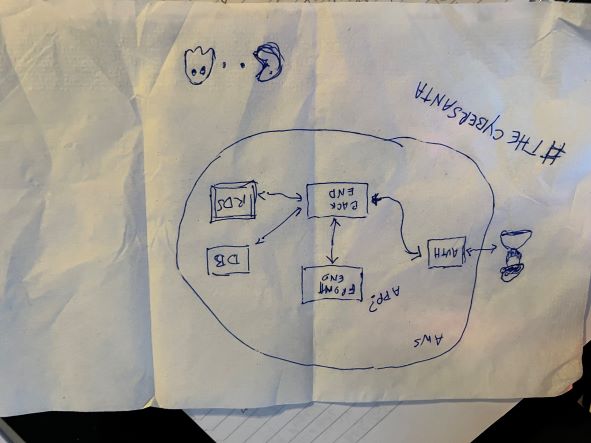 AWS
APP?
FRONT
END
AUTH
DB
BACK
END
RDS
#THECYBERSANTA